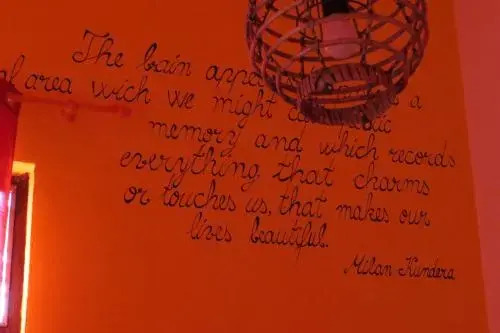 The brain appe a
al area wich we might ca etic
memory and which records
everything, that charms
or touches us, that makes our
lives beautiful.
Milan Kundera